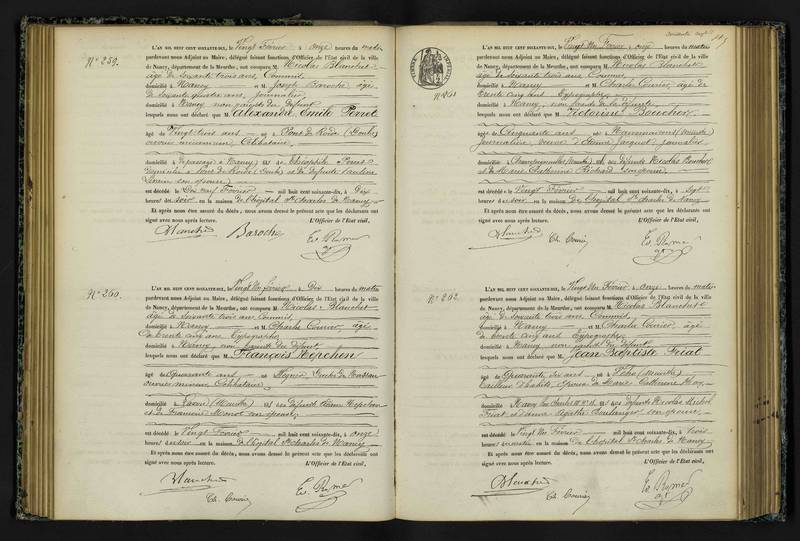 N° 259.
L'AN MIL HUIT CENT SOIXANTE-DIX, le Vingt Février à onze heures du matin
pardevant nous Adjoint au Maire, délégué faisant fonctions d'Officier de l'Etat civil de la ville
de Nancy, département de la Meurthe, ont comparu M. Nicolas Blanchet
âgé de soixante trois ans, Commis,
domicilié à Nancy et M. Joseph Baroche âgé
de soixante quatre ans, journalier,
domicilié à Nancy, non parents du défunt
lesquels nous ont déclaré que M. Alexandre Emile Perrot
âgé de Vingt trois ans né à Pont de Roide (Doubs)
ouvrier mineur, Célibataire,
domicilié à Nancy, fils de Théophile Perrot
à Pont de Roide (Doubs) et de défunte
son épouse
est décédé le Dix neuf Février mil huit cent soixante-dix, à Dix
heures du soir, en la maison de l'hôpital St Charles de Nancy
Et après nous être assuré du décès, nous avons dressé le présent acte que les déclarants ont
signé avec nous après lecture. L'Officier de l'Etat civil,
Blanchet Baroche
N° 260.
L'AN MIL HUIT CENT SOIXANTE-DIX, le Vingt Un Février à Dix heures du matin
pardevant nous Adjoint au Maire, délégué faisant fonctions d'Officier de l'Etat civil de la ville
de Nancy, département de la Meurthe, ont comparu M. Nicolas Blanchet
âgé de soixante trois ans, Commis,
domicilié à Nancy et M. Charles Courier, âgé
de trente cinq ans, Typographe,
domicilié à Nancy, non parents du défunt
lesquels nous ont déclaré que M. François Hepchon
âgé de Quarante ans né à Duché de Nassau
ouvrier mineur Célibataire,
domicilié à Laxou (Meurthe) fils des défunts
et de Françoise son épouse
est décédé le Vingt Février mil huit cent soixante-dix, à onze
heures du soir en la maison de l'hôpital St Charles de Nancy
Et après nous être assuré du décès, nous avons dressé le présent acte que les déclarants ont
signé avec nous après lecture. L'Officier de l'Etat civil,
Blanchet
Ch. Courier
L'AN MIL HUIT CENT SOIXANTE-DIX, le Vingt Un Février à onze heures du matin
pardevant nous Adjoint au Maire, délégué faisant fonctions d'Officier de l'Etat civil de la ville
de Nancy, département de la Meurthe, ont comparu M. Nicolas Blanchet
âgé de soixante trois ans, Commis,
domicilié à Nancy et M. Charles Courier, âgé de
trente cinq ans, Typographe,
domicilié à Nancy, non parents de la défunte
lesquels nous ont déclaré que M. Victorine Bouchon
âgé de Cinquante ans né à (Meurthe)
journalière, veuve d'Etienne Jacquot, journalier
domicilié à (Meurthe) fille des défunts Nicolas Bouchon
et de Marie Catherine Richard son épouse
est décédé le Vingt Février mil huit cent soixante-dix, à Sept
heures du soir, en la maison de l'hôpital St Charles de Nancy
Et après nous être assuré du décès, nous avons dressé le présent acte que les déclarants ont
signé avec nous après lecture. L'Officier de l'Etat civil,
Blanchet
Ch. Courier
N° 262.
L'AN MIL HUIT CENT SOIXANTE-DIX, le Vingt Un Février à onze heures du matin
pardevant nous Adjoint au Maire, délégué faisant fonctions d'Officier de l'Etat civil de la ville
de Nancy, département de la Meurthe, ont comparu M. Nicolas Blanchet
âgé de soixante trois ans, Commis,
domicilié à Nancy et M. Charles Courier, âgé
de trente cinq ans, Typographe,
domicilié à Nancy, non parents du défunt
lesquels nous ont déclaré que M. Jean Baptiste Friat
âgé de Quarante dix ans né à (Meurthe)
tailleur d'habits, époux de Marie Catherine
domicilié à Nancy fils des défunts Nicolas Michel
Friat et d'Anne Agathe Boulanger son épouse,
est décédé le Vingt Un Février mil huit cent soixante-dix, à trois
heures du matin, en la maison de l'hôpital St Charles de Nancy
Et après nous être assuré du décès, nous avons dressé le présent acte que les déclarants ont
signé avec nous après lecture. L'Officier de l'Etat civil,
Blanchet
Ch. Courier